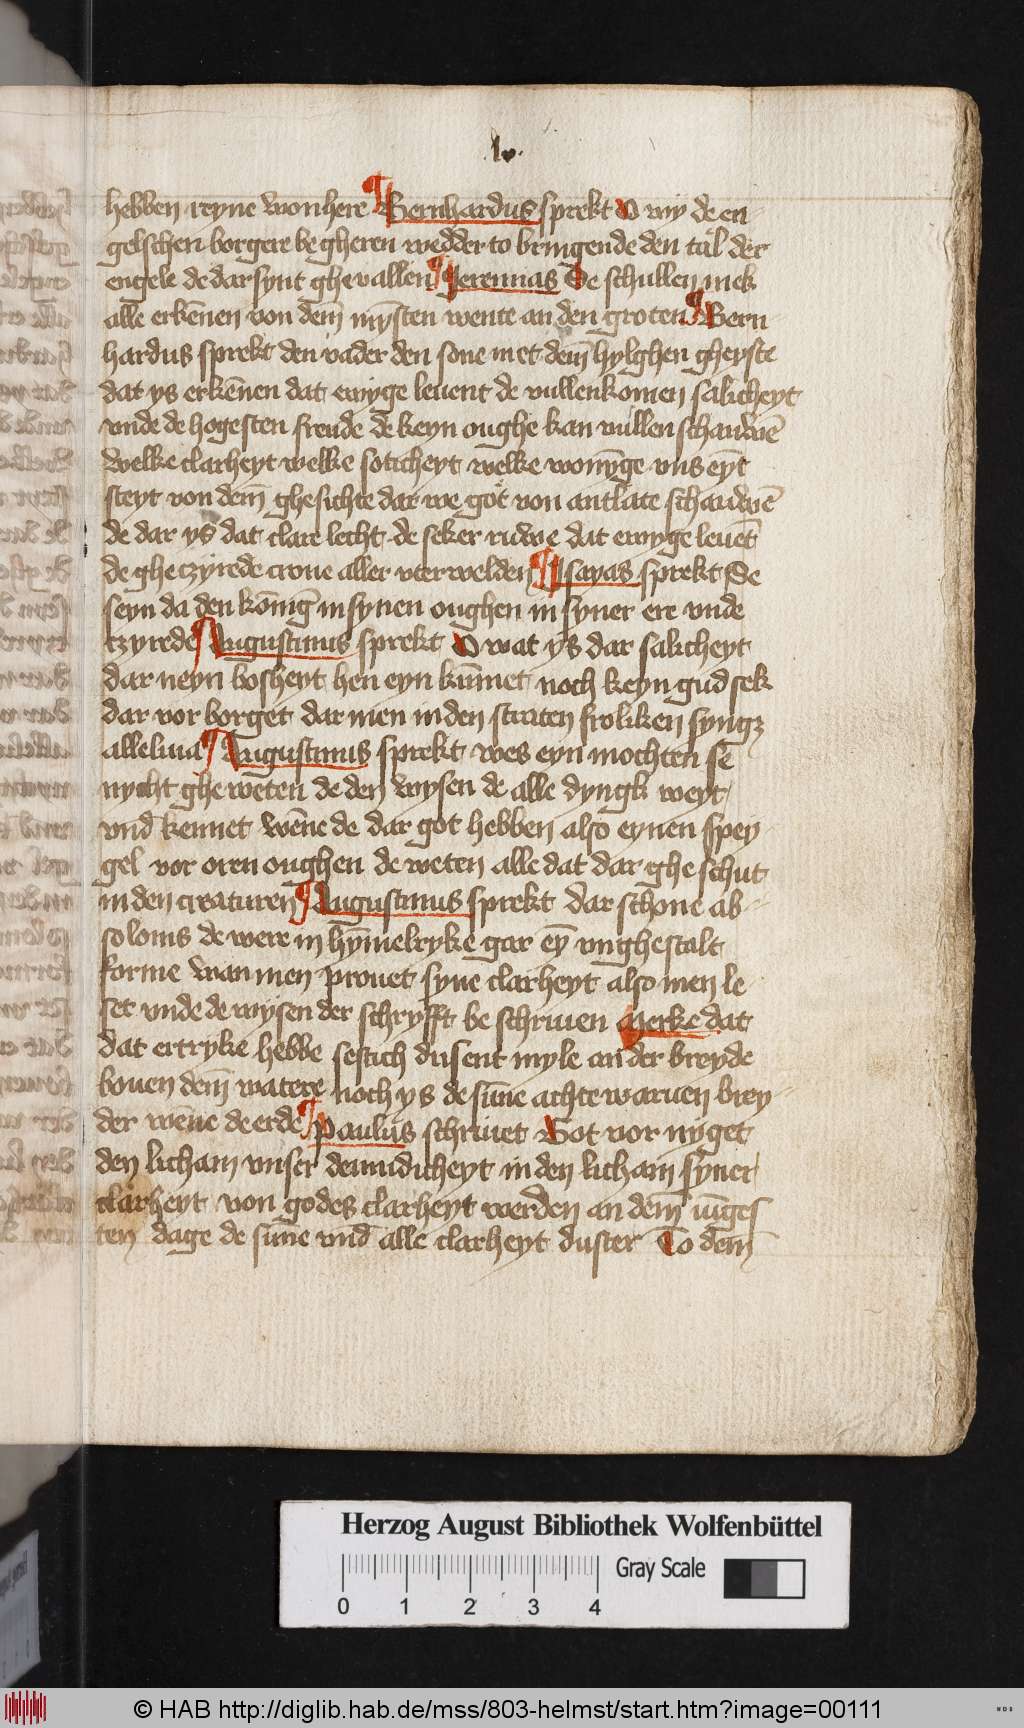 .lv.
hebben reyne wonhere ¶ Bernhardus sprekt O wy de en-
gelschen borgere begheren wedder to bringende den tal der
engele de dar synt ghevallen ¶ Jeremias De schullen mek
alle erkēnen von dem̄ mynsten wente an den groten ¶ Bern-
hardus sprekt den vader den sone met dem̄ hylghen gheyste
dat ys erkēnen dat ewyge leuent de vullenkomen salicheyt
vnde de hogesten freude de keyn oughe kan vullen schauwē
welke clarheyt welke soticheyt welke wonn̄yge vns eyt
steyt von dem̄ ghesichte dar we got von antlate schauwē
de dar ys dat clare lecht de seker ruwe dat ewyge leuēt
de gheczyrede crone aller werwelden ¶ Isayas sprekt Se
seyn da den kōnig in synen oughen in syner ere vnde
czyrede ¶ Augustinus sprekt O wat ys dar salicheyt
dar neyn bosheyt hen eyn kūmet noch keyn gud sek
dar vorborget dar men in den straten froliken syngz
alleluia ¶ Augustinus sprekt wes eyn mochten se
nycht gheweten de den wysen de alle dyngk weyt
vnd kennet wēne de dar got hebben also eynen spey-
gel vor oren oughen de weten alle dat dar gheschut
in den creaturen ¶ Augustinus sprekt dar schone ab-
solonis de were in hȳmelryke gar eȳ vnghestalt
forme wan men prouet syne clarheyt also men le-
set vnde de wysen der schryfft beschriuen Merke dat
dat ertryke hebbe sestich dusent myle an der breyde
bouen dem̄ watere noch ys de sūne achte waruen brey-
der wēne de erde ¶ Paulus schriuet Got vornyget
den licham vnser demudicheyt in den licham syner
clarheyt von godes clarheyt werden an dem̄ iūges
ten dage de sūne vnd alle clarheyt duster To dem̄
Herzog August Bibliothek Wolfenbüttel
Gray Scale
0 1 2 3 4
© HAB http://diglib.hab.de/mss/803-helmst/start.htm?image=00111